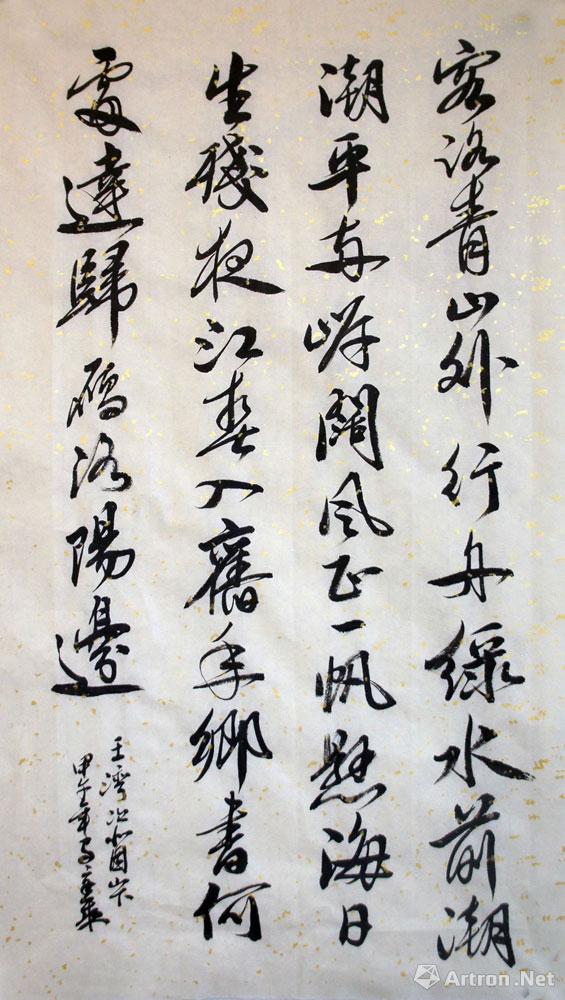 客路青山外行舟綠水前潮
潮平兩岸闊風正一帆懸海日
生殘夜江春入舊年鄉書何
處達歸雁洛陽邊
王灣次北固山下
甲午年
Artron.Net